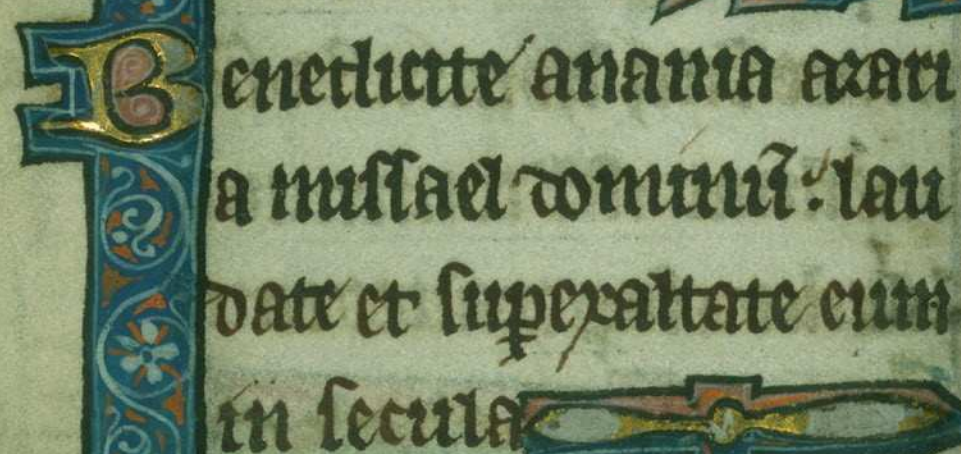 Benedicite anania azari
a missael dominū: lau
date et suꝑexaltate eum
in secula